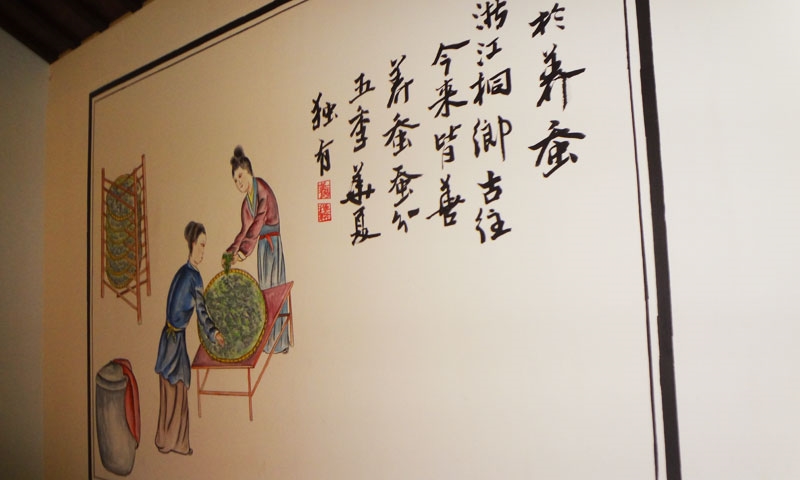 於养蚕
浙江桐鄉古往
今来皆善
养蚕蚕分
五季華夏
独有